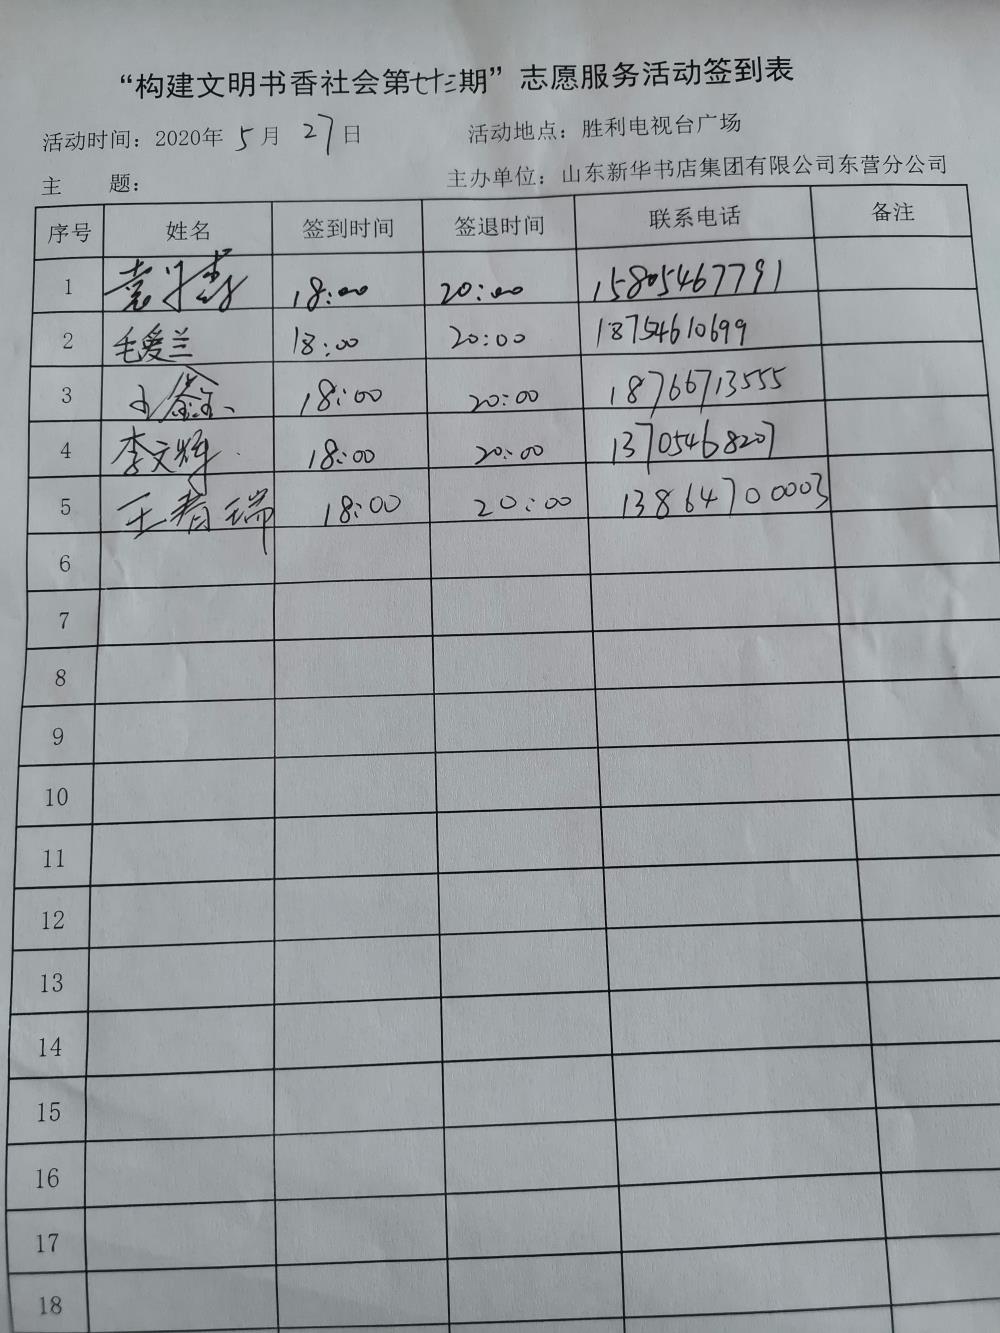 “构建文明书香社会第七十三期”志愿服务活动签到表
活动时间：2020年 5 月 27 日 活动地点：胜利电视台广场
主 题： 主办单位：山东新华书店集团有限公司东营分公司
序号 姓名 签到时间 签退时间 联系电话 备注
1 18:00 20:00 15805467791
2 毛爱兰 18:00 20:00 18754610699
3 18:00 20:00 18766713555
4 李文辉 18:00 20:00 13705468207
5 王春瑞 18:00 20:00 13864700003
6
7
8
9
10
11
12
13
14
15
16
17
18